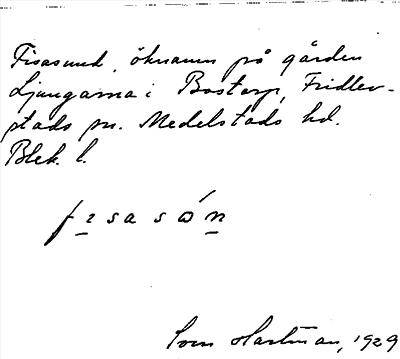 Fisasund, öknamn på gården
Ljungarna i Bostorp, Fridlev-
stads sn. Medelstads hd.
Blek. l.
fısasón
Sven Hartman, 1929